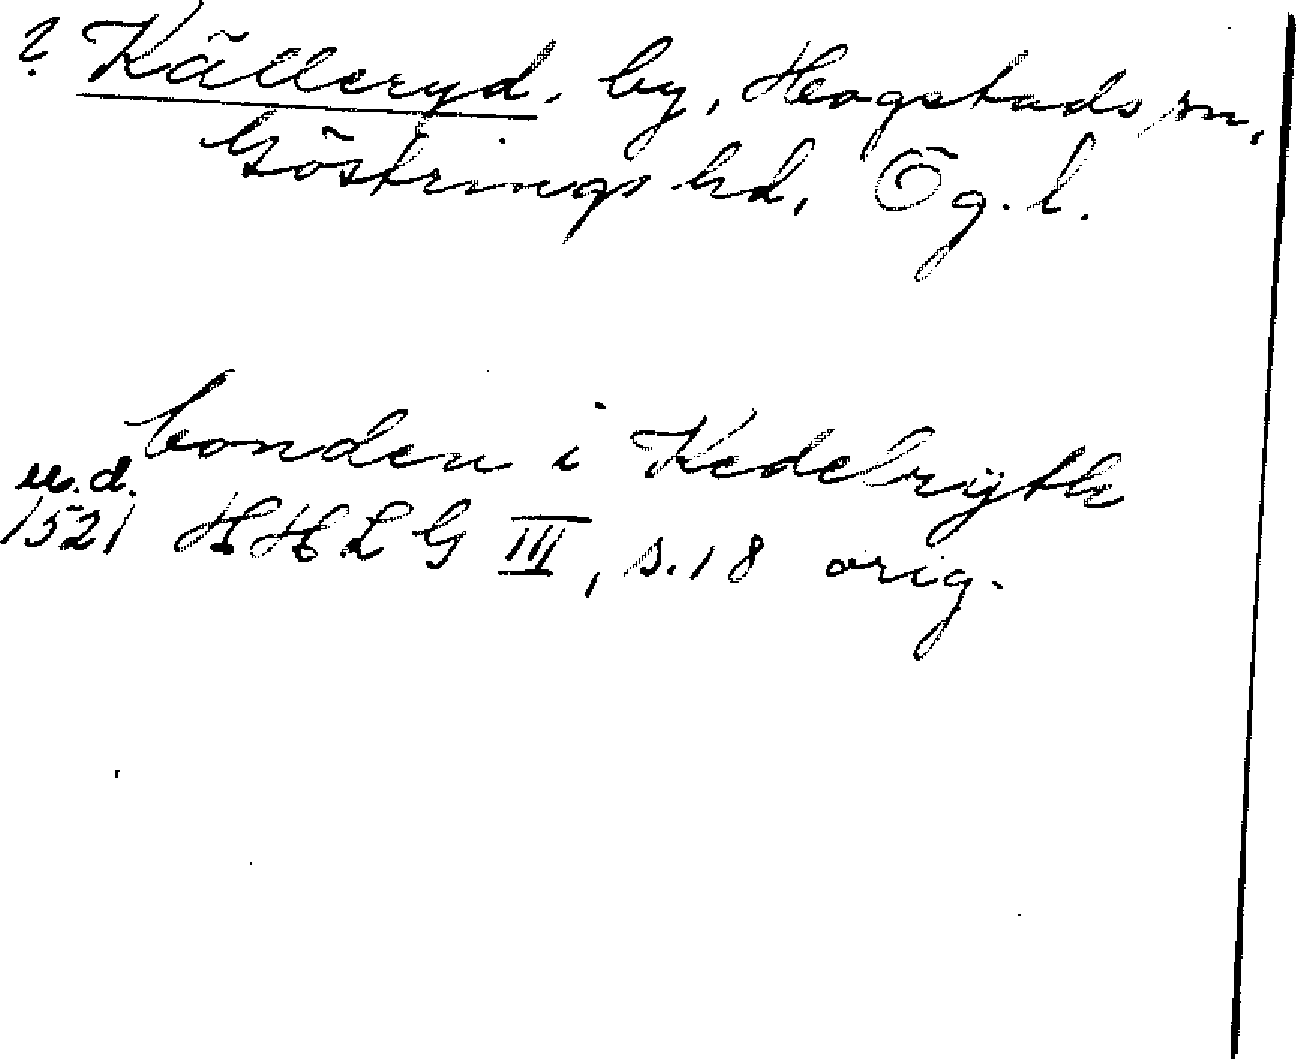 ? Källeryd, by, Hogstads sn,
Göstrings hd, Ög. l.
bonden i Kedelrythe
u.d.
1521 HHLG III, s. 18 orig.